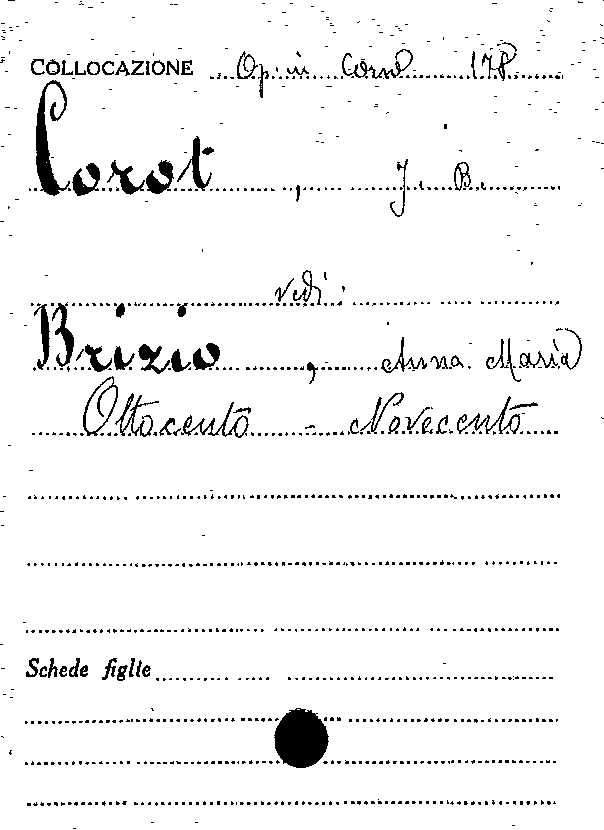 COLLOCAZIONE Op. in Corso 178
Corot, J. B.
vedi:
Brizio, Anna Maria
Ottocento - Novecento
Schede figlie